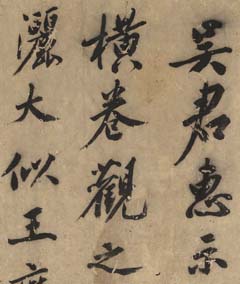 吴君惠示
横卷觀之
灑大似王